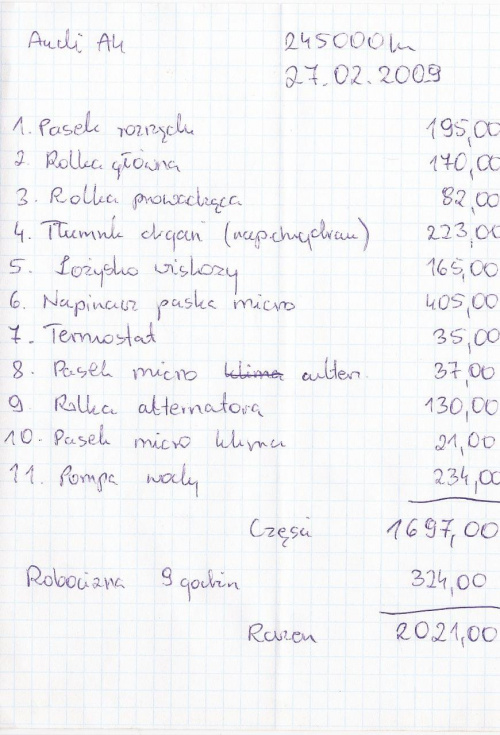 Audi A4 245000 km
27.02.2009
1. Pasek rozrządu 195,00
2. Rolka główna 170,00
3. Rolka prowadząca 82,00
4. Tłumik drgań (nap 223,00
5. Łożysko viskozy 165,00
6. Napinacz paska micro 405,00
7. Termostat 35,00
8. Pasek micro klima altern. 37,00
9. Rolka alternatora 130,00
10. Pasek micro klima 21,00
11. Pompa wody 234,00
Części 1697,00
Robocizna 9 godzin 324,00
Razem 2021,00